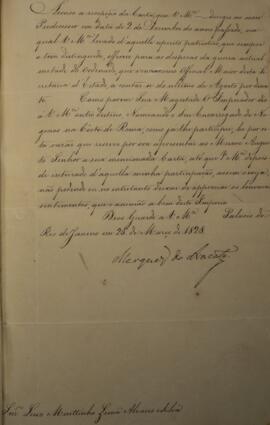 Accuso a recepção da Carta, que V. Mce. dirigio ao meu
Predecessor em data de 2 de Dezembro do anno passado, na
qual V. Mce. levado d'aquelle espirito patriotico, que sempre
o tem distinguido, offerece para as despezas da guerra actual
metade do Ordenado, que vence como Official Maior desta Se
cretaria d'Estado, a contar
Como porem Sua Magestade O Imperador deo
a V. Mce. outro destino Nomeando-o Seu Encarregado de Ne
gocios na Corte de Roma, como já lhe participei,
razão que reservo por ora apresentar ao Mesmo Augus
to Senhor a sua mencionada Carta, até que V. Mce. depois
de recebida aquella minha participação, assim o exija,
não podendo eu no entretanto deixar de approvar os louvaveis
sentimentos, que o animão a bem deste Imperio
Deos Guarde a V. Mce. Palacio do
Rio de Janeiro em 28 de Março de 1828
Marquez do Aracaty
Snr.